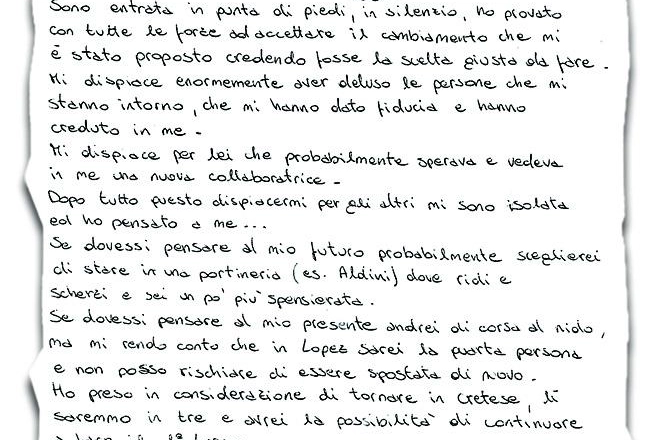 Sono entrata in punta di piedi, in silenzio, ho provato
con tutte le forze ad accettare il cambiamento che mi
è stato proposto credendo fosse la scelta giusta da fare.
Mi dispiace enormemente aver deluso le persone che mi
stanno intorno, che mi hanno dato fiducia e hanno
creduto in me.
Mi dispiace per lei che probabilmente sperava e vedeva
in me una nuova collaboratrice.
Dopo tutto questo dispiacermi per gli altri mi sono isolata
ed ho pensato a me...
Se dovessi pensare al mio futuro probabilmente sceglierei
di stare in una portineria (es. Aldini) dove ridi e
scherzi e sei un po' più spensierata.
Se dovessi pensare al mio presente andrei di corsa al nido,
ma mi rendo conto che in Lopez sarei la quarta persona
e non posso rischiare di essere spostata di nuovo.
Ho preso in considerazione di tornare in Cretese, lì
saremmo in tre e avrei la possibilità di continuare